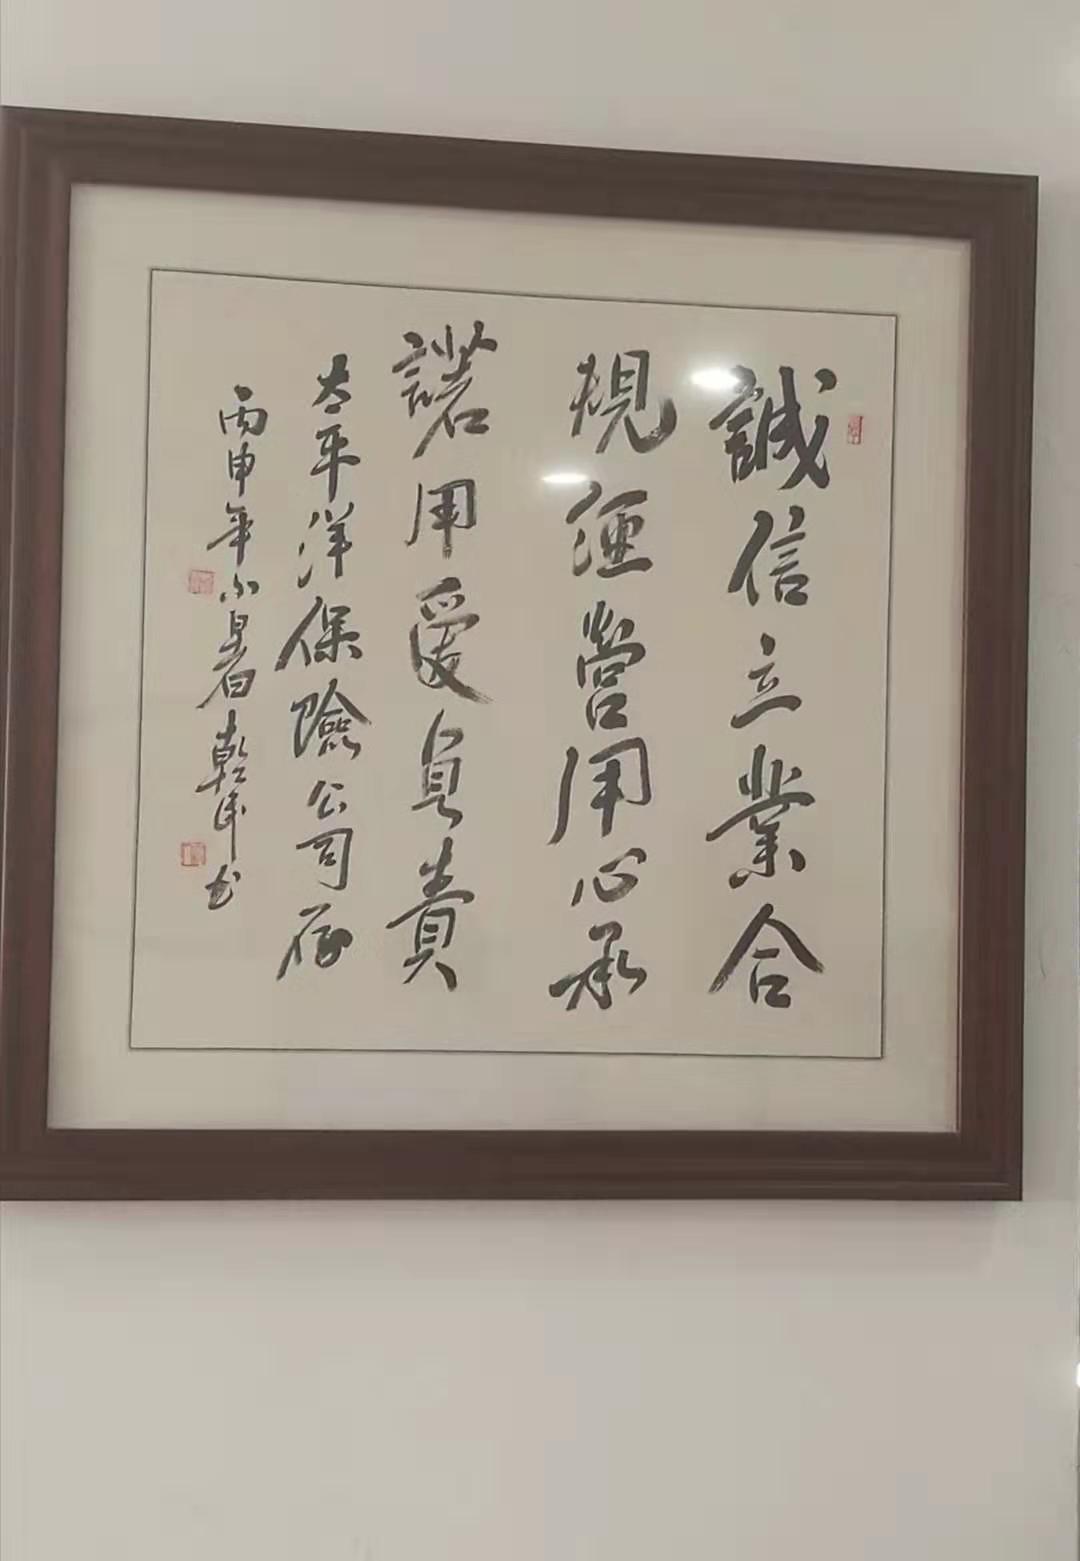 誠信立業合
規経營用心承
諾用愛負責
太平洋保險公司存
丙申年小暑乾民书